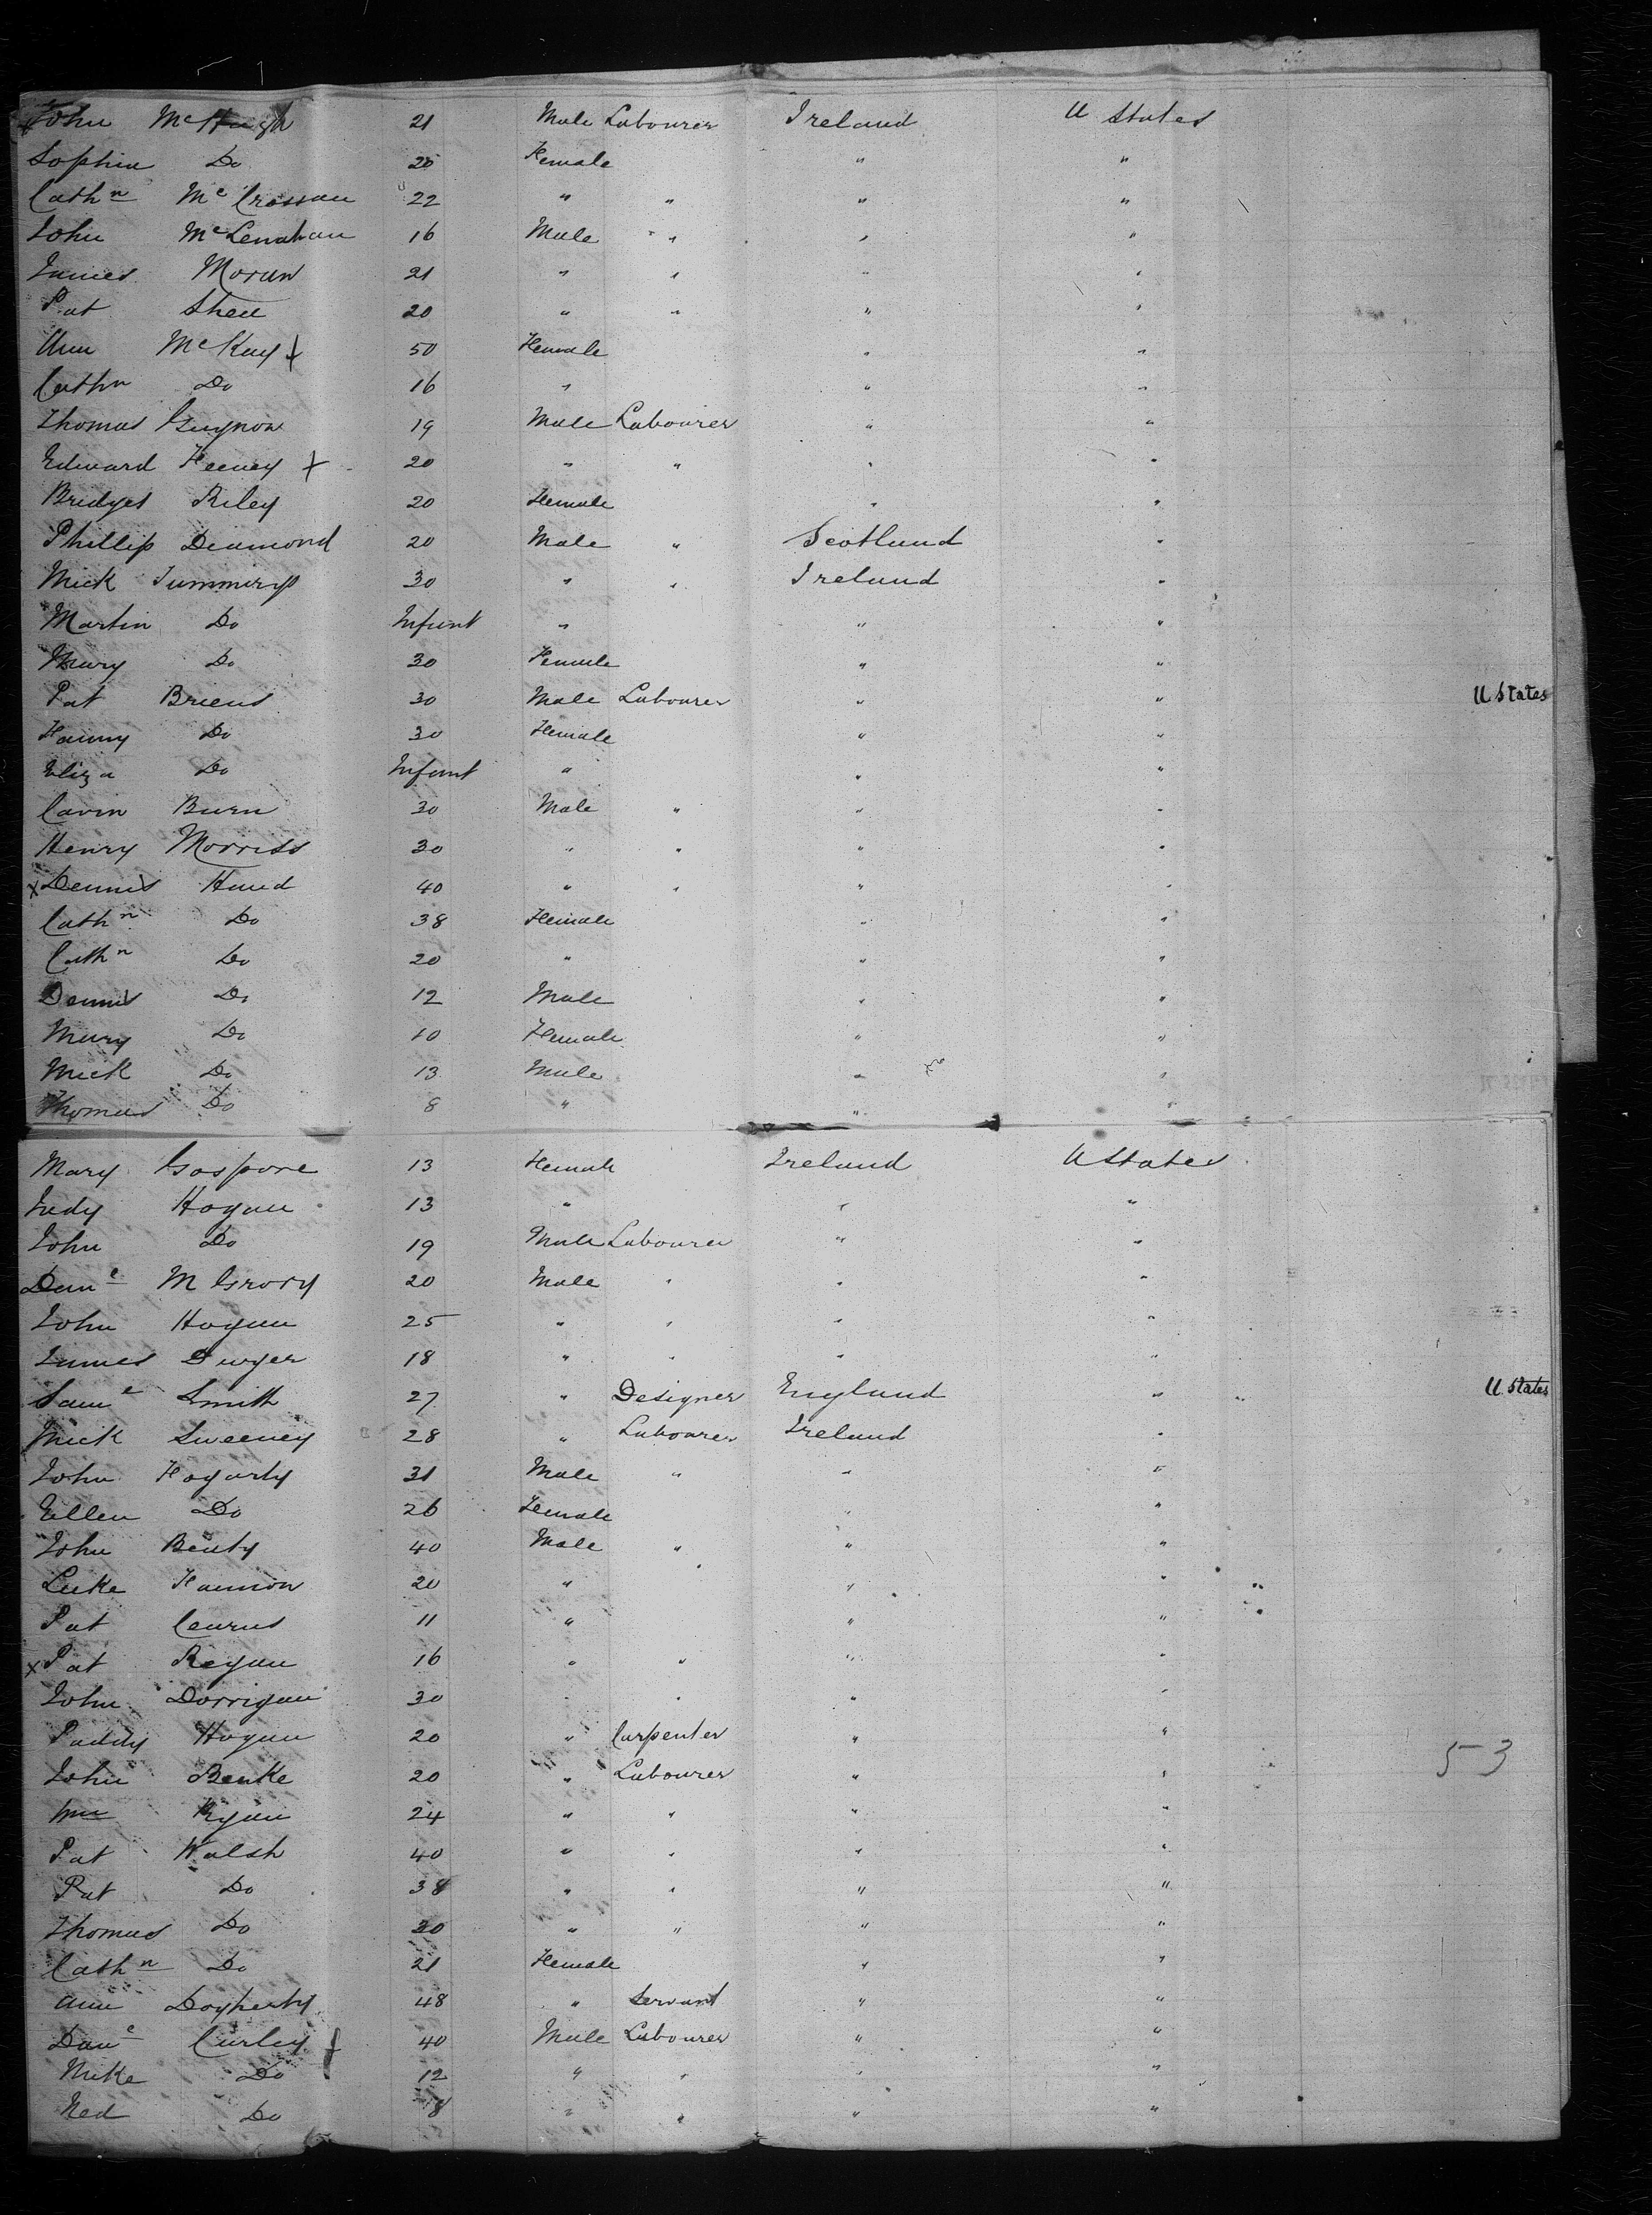 John McHugh 21 Male Labourer Ireland U States
Sophia Do 25 Female " "
Cathn McCrossan 22 " " " "
John McLenahan 16 Male " " "
James Moran 21 " " " "
Pat Shea 20 " " " "
Ann McKay x 50 Female " "
Cathn Do 16 " " "
Thomas 19 Male Labourer " "
Edward Feeney x 20 " " " "
Bridget Riley 20 Female " "
Phillip Diamond 20 Male " Scotland "
Mick 30 " " Ireland "
Martin Do Infant " " "
Mary Do 30 Female " "
Pat Briens 30 Male Labourer " " U States
Fanny Do 30 Female " "
Eliza Do Infant " " "
Cavin Burn 30 Male " " "
Henry Morriss 30 " " " "
x Dennis Hand 40 " " " "
Cathn Do 38 Female " "
Cathn Do 20 " " "
Dennis Do 12 Male " "
Mary Do 10 Female " "
Mick Do 13 Male " "
Thomas Do 8 " "
Mary Gaspore 13 Female Ireland U States
Judy Hogan 13 " " "
John Do 19 Male Labourer " "
Danl M Grory 20 Male " " "
John Hogan 25 " " " "
James Dwyer 18 " " " "
Saml Smith 27 " Designer England " U States
Mick Sweeney 28 " Labourer Ireland "
John Fogarty 31 Male " " "
Ellen Do 26 Female " "
John Beaty 40 Male " " "
Luke Hannon 20 " " "
Pat 11 " " "
x Pat Regan 16 " " " "
John Dorrigan 30 " " " "
Paddy Hogan 20 " Carpenter " "
John Burke 20 " Labourer " " 53
Wm Ryan 24 " " " "
Pat Walsh 40 " " " "
Pat Do 38 " " " "
Thomas Do 30 " " " "
Cathn Do 21 Female " "
Ann Dogherty 48 " Servant " "
Danl Curley x 40 Male Labourer " "
Mike Do 12 " " " "
Ned Do 8 " " " "